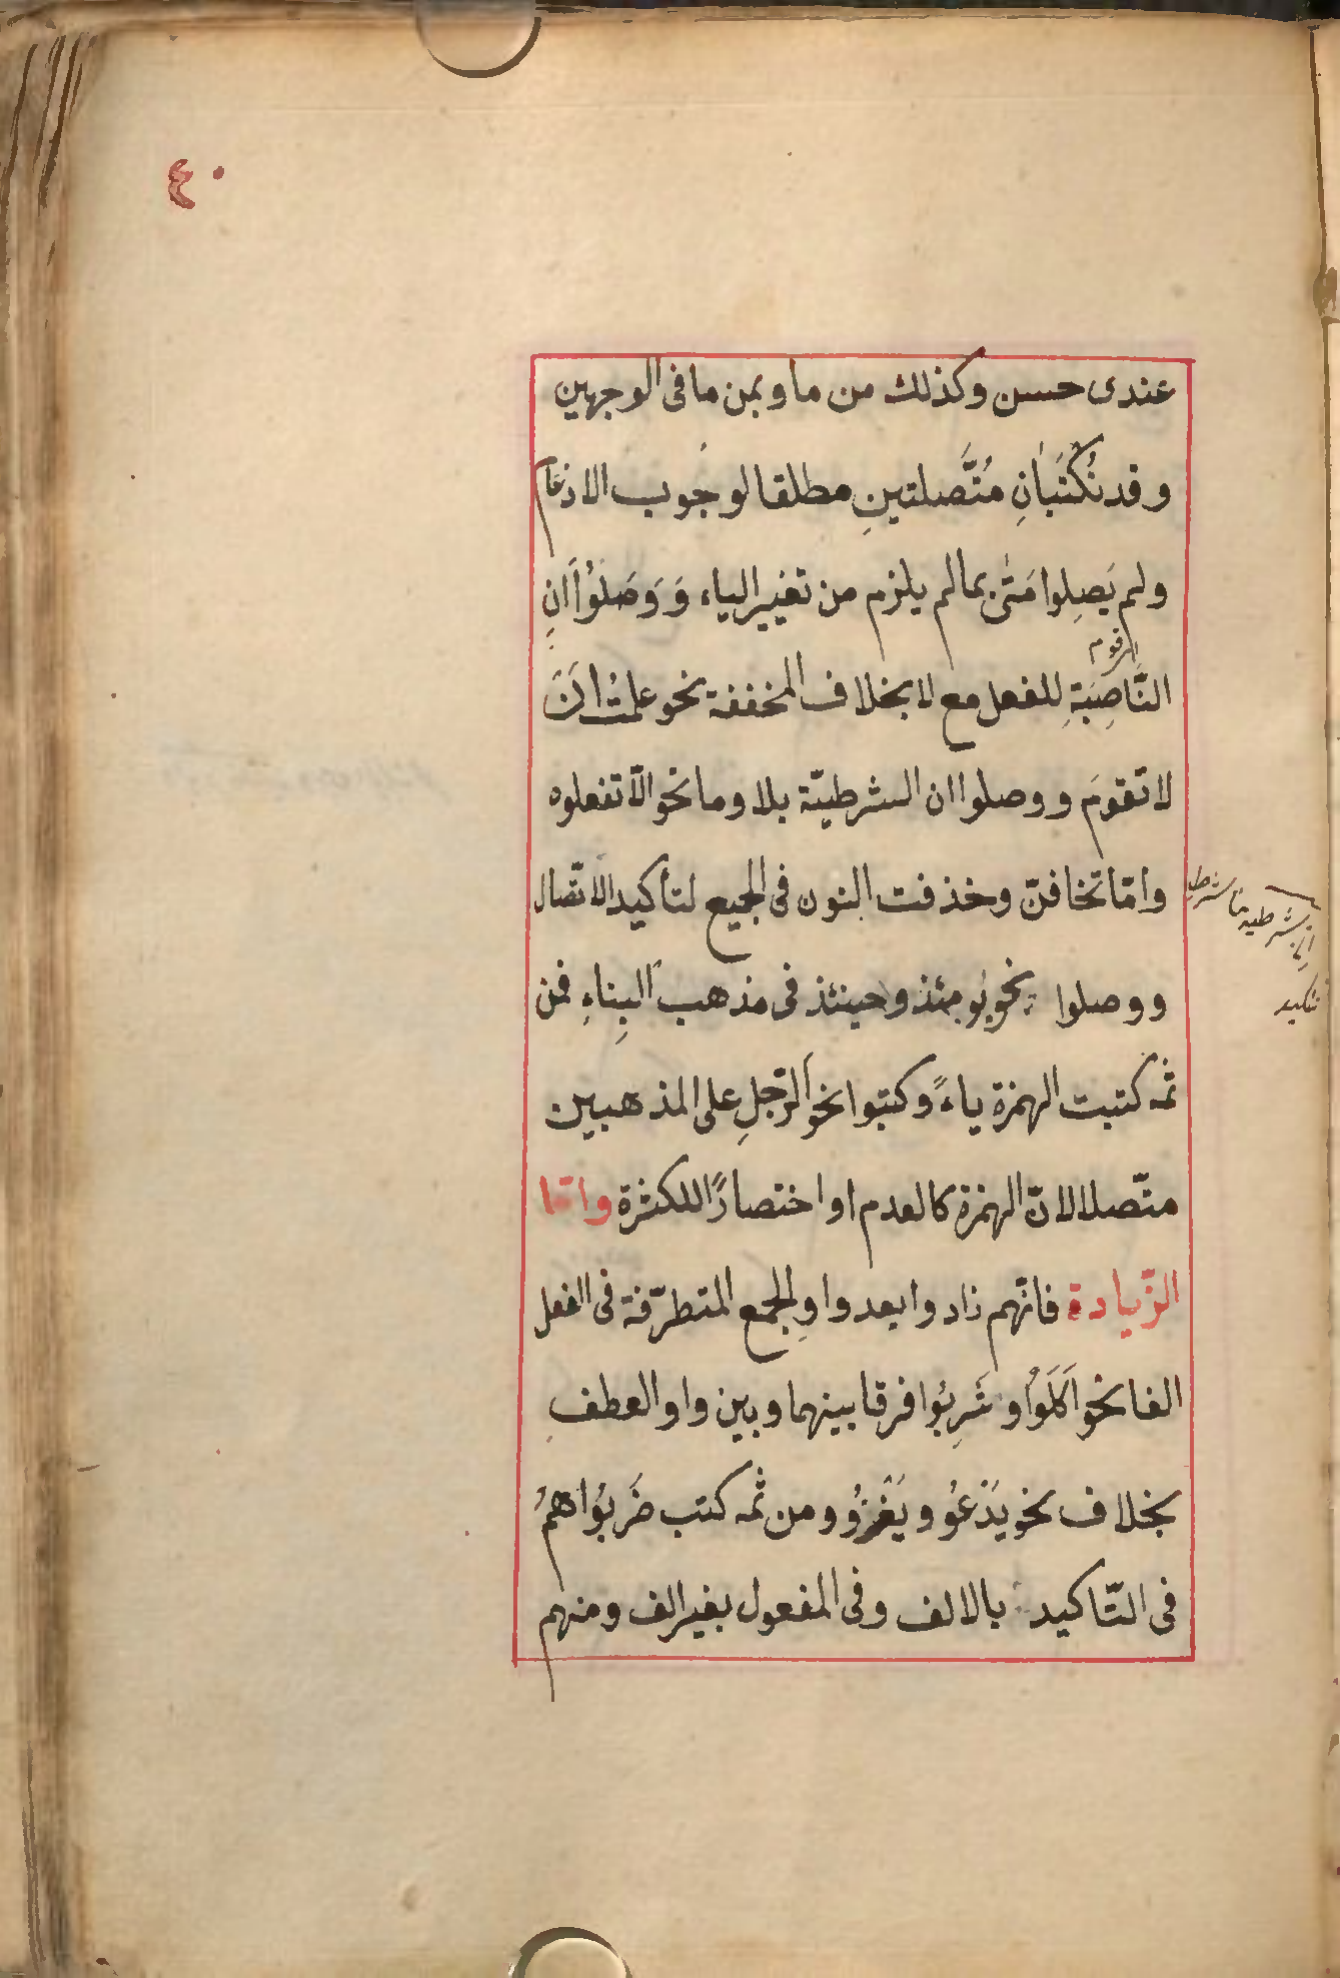 ٤٠
عندى حسن وكذلك من ما وبمن ما فى الوجهين
وقد تُكْتَبَانِ مُتَّصلتينِ مطلقا لوجُوب الادغام
ولم يَصِلوا مَتٰى بما لم يلزم من تغيير الياء وَوَصَلُوْا اَنِ
النَّاصِبَةِ للفعل مع لا بخلاف المخففة نحو علمتُ اَنَ
لا تقومَ ووصلوا ان الشرطيّة بلا وما نحو الّا تفعلوه
وامّا تخافنّ وخذفت النون فى الجميع لتأكيد الاتّصال
ووصلوا نحو يومئذ وحينئذ فى مذهب البِناءِ فمن
ثمه كتبت الهمزة ياءً وكتبوا نحو الرّجلِ على المذهبين
متّصلا لانّ الهمزة كالعدم او اختصارًا للكثرة وامّا
الزّيادة فانّهم زادوا بعد واوِ الجمع المتطرّفة فى الفعل
الفا نحو اَكَلُوْا وشَرِبُوا فرقا بينهما وبين واو العطفِ
بخلاف نحو يَدْعُو ويَغْزُو ومن ثمه كتب ضَربُوا همُ
فى التّاكيد بالالف وفى المفعول بغير الف ومنهم
ان شرطيه ما شرط